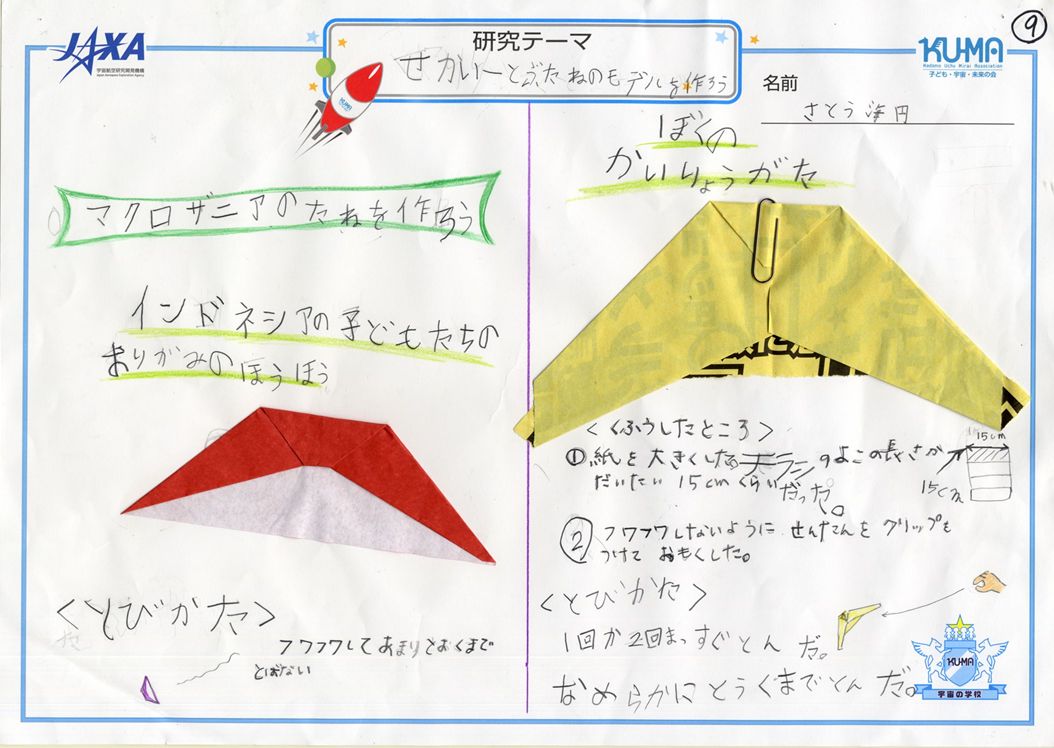 JAXA
宇宙航空研究開発機構
Japan Aerospace Exploration Agency
研究テーマ
せかい一とぶたねのモデルを作ろう
KU-MA
Kodomo Uchu Mirai Association
子ども・宇宙・未来の会
9
名前
さとう 海円
KUMA
マクロザニアのたねを作ろう
インドネシアの子どもたちの
おりがみのほうほう
<とびかた>
フワフワしてあまりとおくまで
とばない
ぼくの
かいりょうがた
<くふうしたところ>
① 紙を大きくした のよこの長さが
だいたい15cmくらいだった。
15cm
15cm
② フワフワしないように せんたんを クリップを
つけて おもくした。
<とびかた>
1回か2回まっすぐとんだ。
なめらかにとうくまでとんだ。
KUMA
宇宙の学校